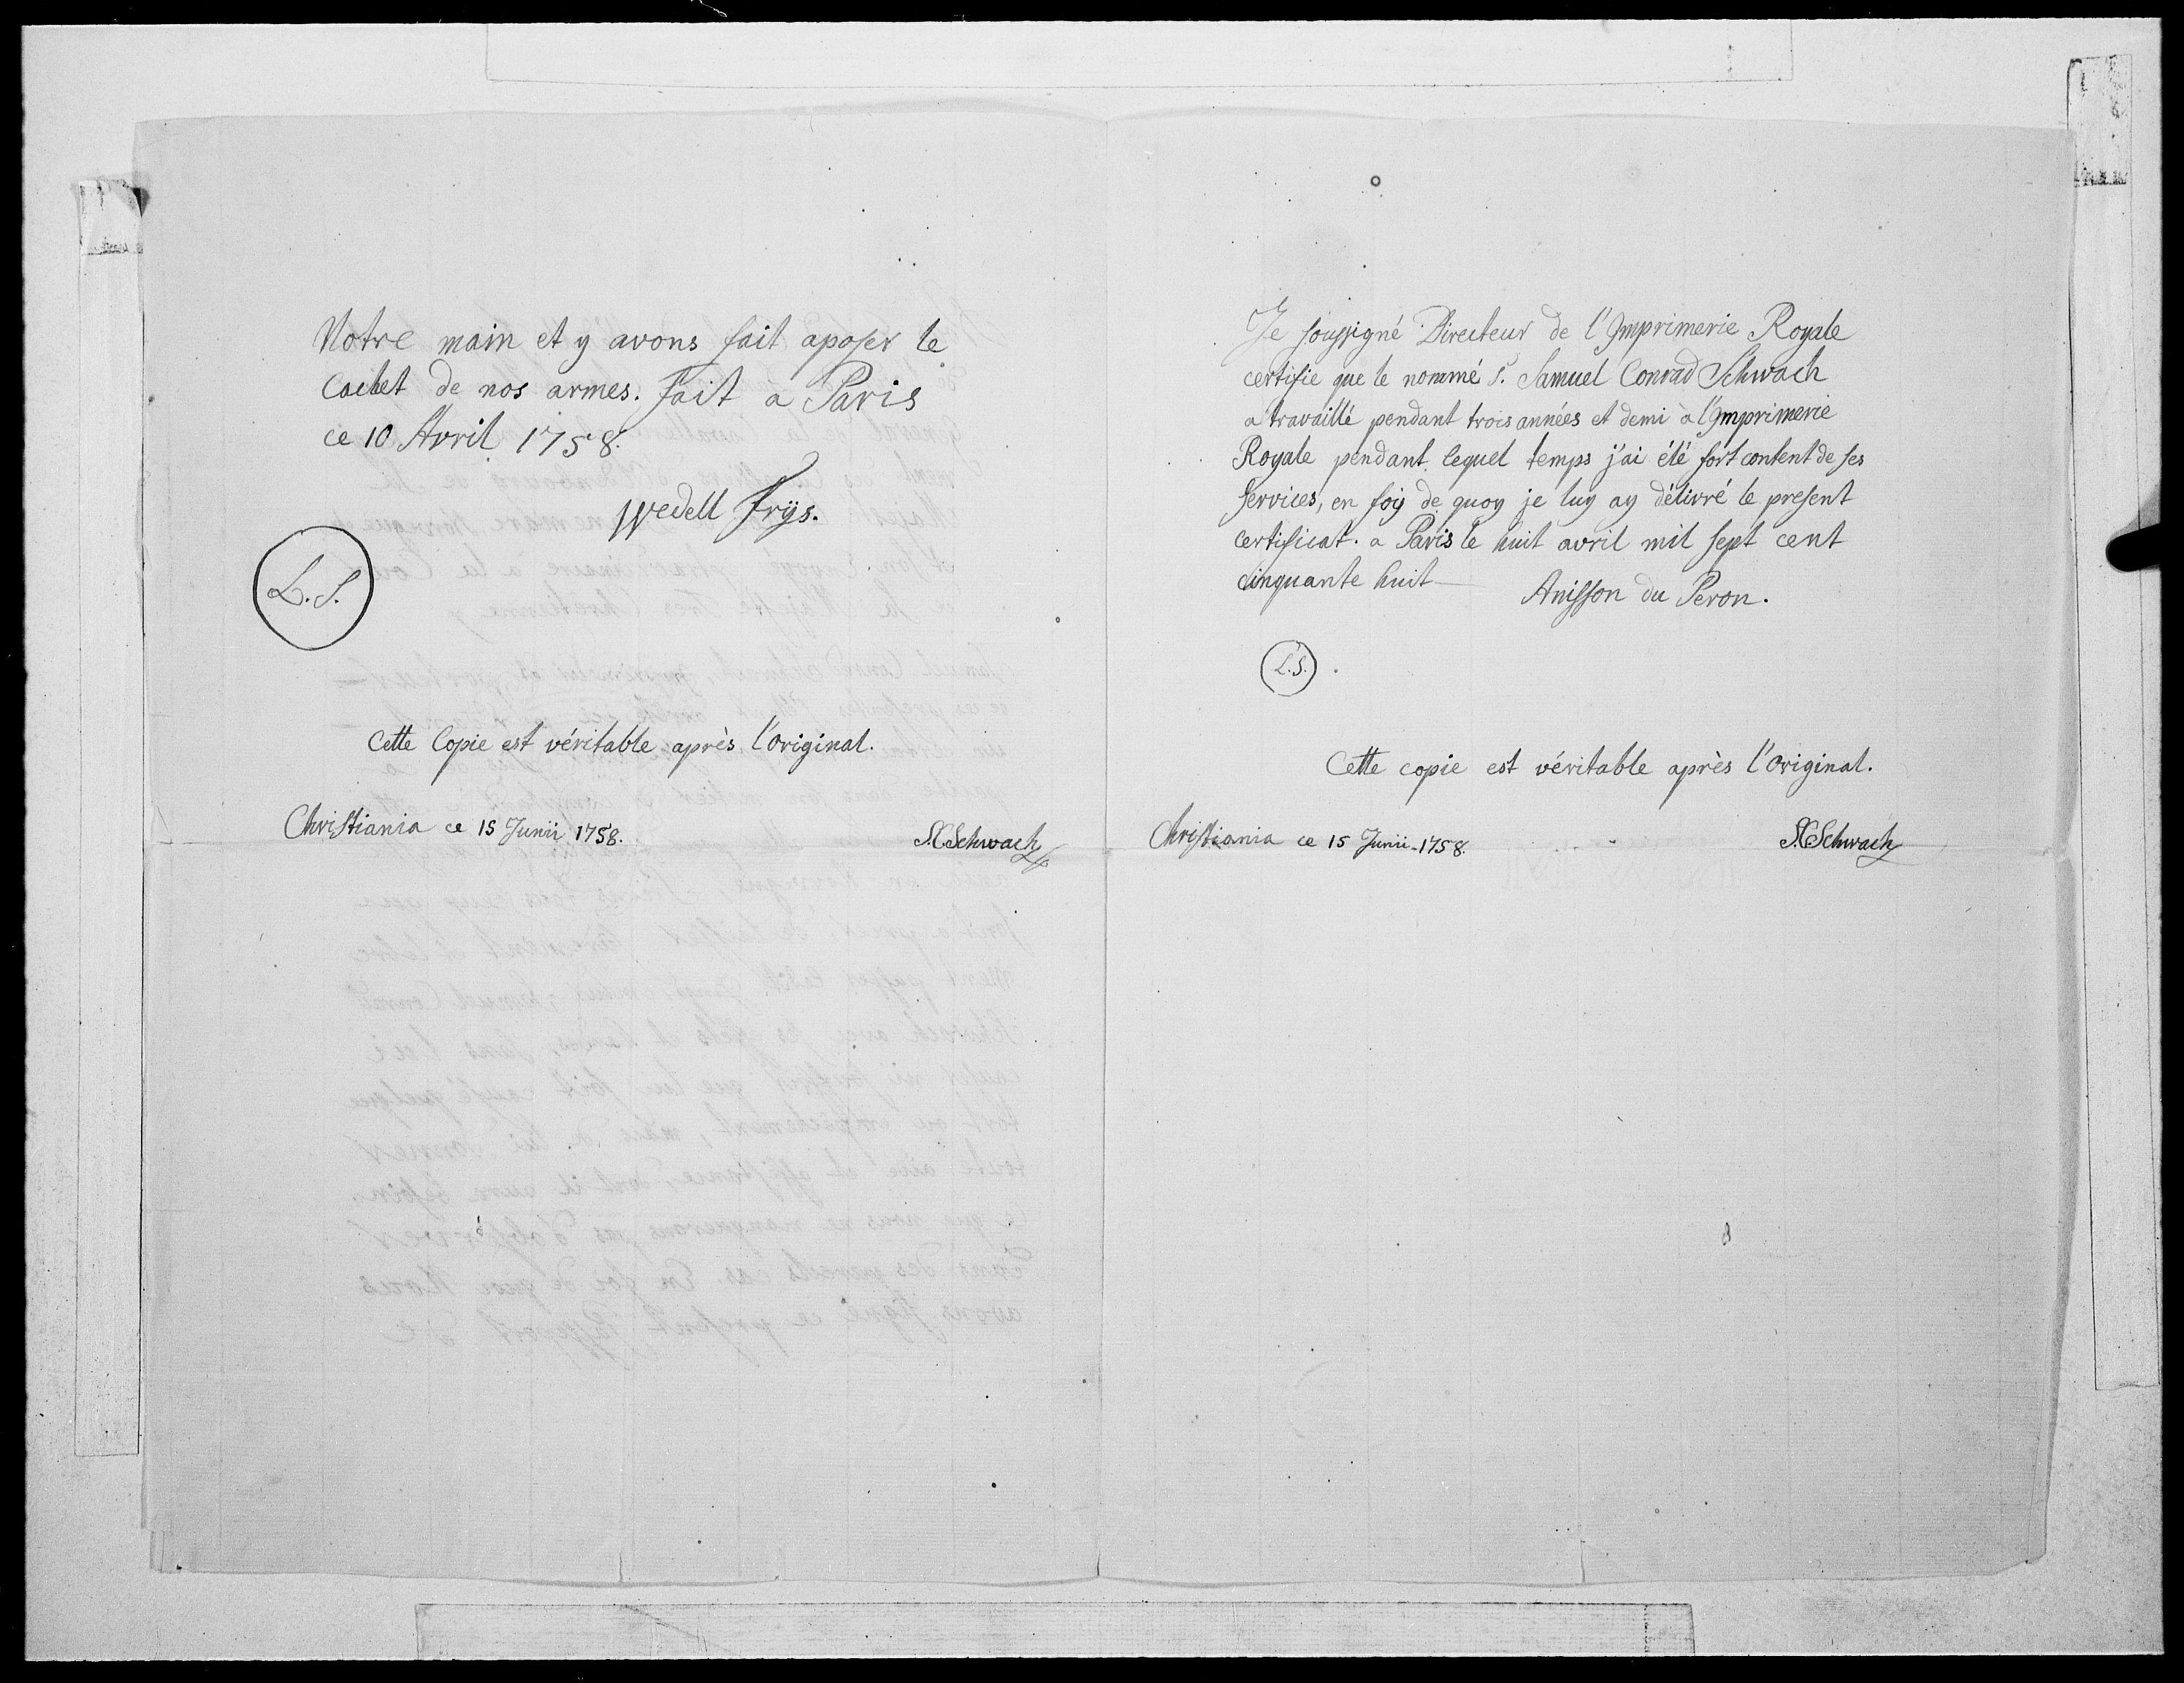 Notre main et y avons fait aposer le
Cachet de nos armes. fait à Paris
ce 10 Avril 1758.
Wedell Frÿs.
L. S.
Cette Copie est véritable après l'original.
Christiania ce 15 Junii 1758.
S.C.Schwach
Je soussigné Directeur de l'Imprimerie Royale
certifie que le nommé S. Samuel Conrad Schwach
a travaillé pendant trois années et demi à l'Imprimerie
Royale pendant lequel temps j'ai été fort content de ses
services, en foy de quoy je luy ay délivré le present
certificat. a Paris le huit avril mil sept cent
cinquante huit
Anisson du Peron.
L.S.
Cette copie est véritable après l'Original.
Christiania ce 15 Junii 1758.
S.C.Schwach